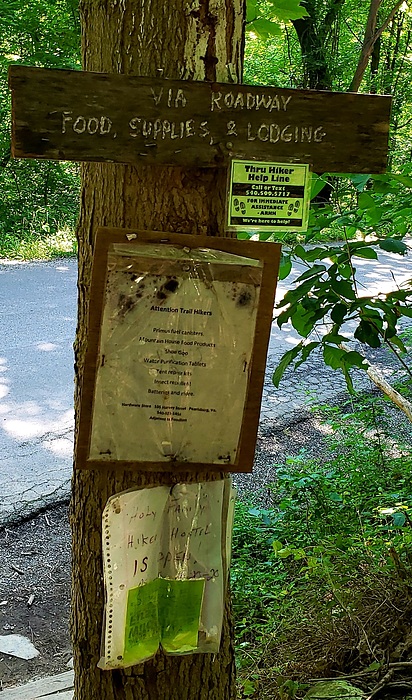 VIA ROADWAY
FOOD, SUPPLIES, & LODGING
Thru Hiker
Help Line
Call or Text
540.509.5717
FOR IMMEDIATE
ASSISTANCE
-ARHN
We're here to help!
Attention Trail Hikers
Primus fuel canisters
Mountain House Food Products
Shoe Goo
Water Purification Tablets
Tent repair kits
Insect repellent
Batteries and more
Hardware Store Street Pearisburg, Va.
HOLY FAMILY
HIKER HOSTEL
IS OPEN